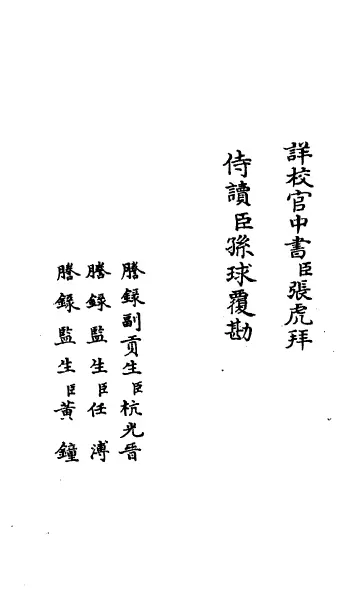 詳校官中書臣張虎拜
侍讀臣孫球覆勘
謄錄副貢生臣杭光晉
謄錄監生臣任溥
謄錄監生臣黃鐘